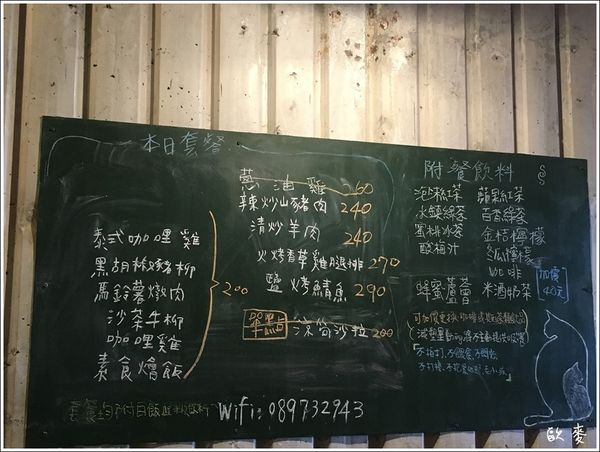 本日套餐
泰式咖哩雞
黑胡椒豬柳
馬鈴薯燉肉
沙茶牛柳
咖哩雞
素食燴飯
200
套餐均附白飯
蔥油雞 260
辣炒山豬肉 240
清炒羊肉 240
火烤香草雞腿排 270
鹽烤鯖魚 290
單點 涼筍沙拉 200
Wifi: 089732943
附餐飲料
泡沫紅茶 蘋果紅茶
冰鎮綠茶 百香綠茶
蜜桃冰茶 金桔檸檬
酸梅汁 冬瓜檸檬
咖啡
蜂蜜蘆薈 米酒奶茶
加價
40元
不拍打、不餵食、不
歐麥